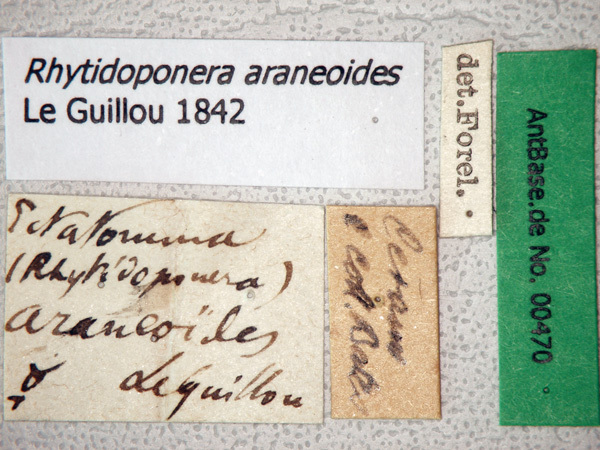 Rhytidoponera araneoides
Le Guillou 1842
det. Forel.
AntBase.de No. 00470
Ectatomma
(Rhytidoponera)
araneoïdes
☿ Le Guillou
Ceram